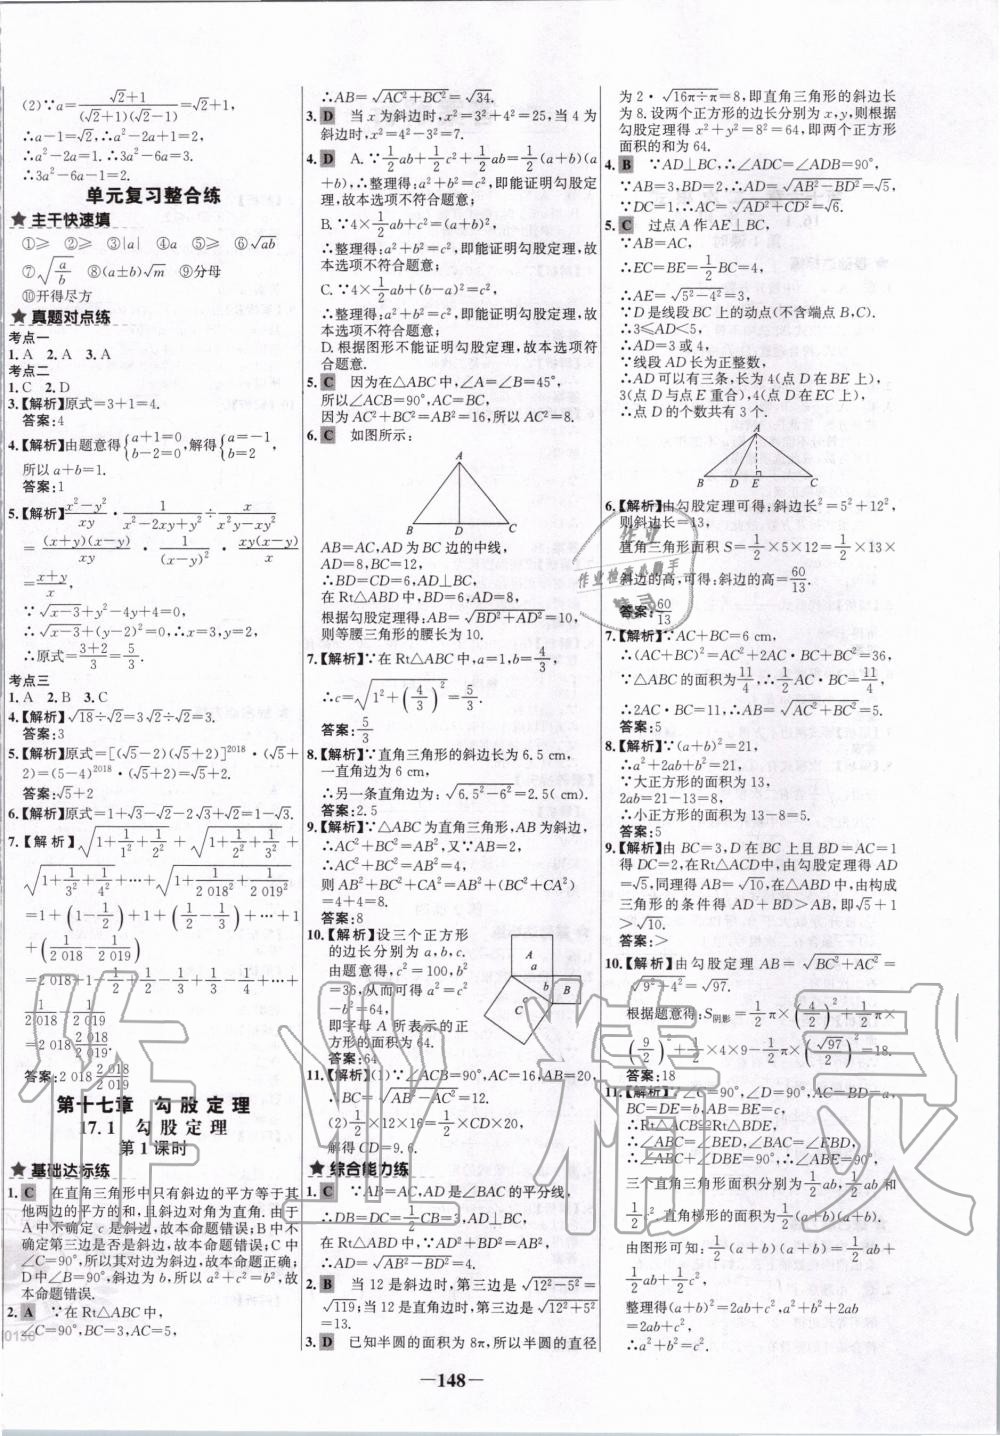 (2)∵a=(√2+1)/((√2+1)(√2-1))=√2+1,
∴a-1=√2,∴a²-2a+1=2,
∴a²-2a=1.∴3a²-6a=3.
∴3a²-6a-1=2.
单元复习整合练
★主干快速填
①≥ ②≥ ③|a| ④a ⑤≥ ⑥√ab
⑦√(a/b) ⑧(a±b)√m ⑨分母
⑩开得尽方
★真题对点练
考点一
1. A 2. A 3. A
考点二
1. C 2. D
3.【解析】原式=3+1=4.
答案:4
4.【解析】由题意得{a+1=0, b-2=0,解得{a=-1 b=2,
所以a+b=1.
答案:1
5.【解析】(x²-y²)/xy·1/(x²-2xy+y²)÷x/(x²y-xy²)
=(x+y)(x-y)/xy·1/(x-y)²·xy(x-y)/x
=(x+y)/x.
∵√(x-3)+y²-4y+4=0,
∴√(x-3)+(y-2)²=0,∴x=3,y=2,
∴原式=(3+2)/3=5/3.
考点三
1. A 2. B 3. C
4.【解析】√18÷√2=3√2÷√2=3.
答案:3
5.【解析】原式=[(√5-2)(√5+2)]²⁰¹⁸·(√5+
2)=(5-4)²⁰¹⁸·(√5+2)=√5+2.
答案:√5+2
6.【解析】原式=1+√3-√2-2√3+√2=1-√3.
7.【解析】√(1+1/1²+1/2²)+√(1+1/2²+1/3²)+
√(1+1/3²+1/4²)+…+√(1+1/2 018²+1/2 019²)
=1+(1-1/2)+1+(1/2-1/3)+…+1
+(1/2 018-1/2 019)
=2 018+1-1/2+1/2-1/3+1/3-1/4+…+
1/2 018-1/2 019
=2 018 2 018/2 019.
答案:2 018 2 018/2 019
第十七章 勾股定理
17.1 勾股定理
第1课时
★基础达标练
1. C 在直角三角形中只有斜边的平方等于其
他两边的平方的和,且斜边对角为直角.由于
A中不确定c是斜边,故本命题错误;B中不
确定第三边是否是斜边,故本命题错误;C中
∠C=90°,所以其对边为斜边,故本命题正确;
D中∠B=90°,斜边为b,所以a²+c²=b²,故
本命题错误.
2. A ∵在Rt△ABC中,
∠C=90°,BC=3,AC=5,
∴AB=√(AC²+BC²)=√34.
3. D 当x为斜边时,x²=3²+4²=25,当4为
斜边时,x²=4²-3²=7.
4. D A.∵1/2ab+1/2c²+1/2ab=1/2(a+b)(a
+b),∴整理得:a²+b²=c²,即能证明勾股定
理,故本选项不符合题意;
B.∵4×1/2ab+c²=(a+b)²,
∴整理得:a²+b²=c²,即能证明勾股定理,故
本选项不符合题意;
C.∵4×1/2ab+(b-a)²=c²,
∴整理得:a²+b²=c²,即能证明勾股定理,故
本选项不符合题意;
D.根据图形不能证明勾股定理,故本选项符
合题意.
5. C 因为在△ABC中,∠A=∠B=45°,
所以∠ACB=90°,AC=BC,
因为AC²+BC²=AB²=16,所以AC²=8.
6. C 如图所示:
A
B D C
AB=AC,AD为BC边的中线,
AD=8,BC=12,
∴BD=CD=6,AD⊥BC,
在Rt△ABD中,BD=6,AD=8,
根据勾股定理得:AB=√(BD²+AD²)=10,
则等腰三角形的腰长为10.
7.【解析】∵在Rt△ABC中,a=1,b=4/3,
∴c=√(1²+(4/3)²)=5/3.
答案:5/3
8.【解析】∵直角三角形的斜边长为6.5 cm,
一直角边为6 cm,
∴另一条直角边为:√(6.5²-6²)=2.5(cm).
答案:2.5
9.【解析】∵△ABC为直角三角形,AB为斜边,
∴AC²+BC²=AB²,又∵AB=2,
∴AC²+BC²=AB²=4,
则AB²+BC²+CA²=AB²+(BC²+CA²)
=4+4=8.
答案:8
10.【解析】设三个正方形
的边长分别为a,b,c,
由题意得,c²=100,b²
=36,从而可得a²=c²
-b²=64,
即字母A所表示的正
方形的面积为64.
答案:64
A
a
b B
c
C
11.【解析】(1)∵∠ACB=90°,AC=16,AB=20,
∴BC=√(AB²-AC²)=12.
(2)1/2×12×16=1/2×CD×20,
解得CD=9.6.
★综合能力练
1. C ∵AB=AC,AD是∠BAC的平分线,
∴DB=DC=1/2CB=3,AD⊥BC,
在Rt△ABD中,∵AD²+BD²=AB²,
∴AD=√(AB²-BD²)=4.
2. B 当12是斜边时,第三边是√(12²-5²)=
√119;当12是直角边时,第三边是√(12²+5²)
=13.
3. D 已知半圆的面积为8π,所以半圆的直径
为2·√(16π÷π)=8,即直角三角形的斜边长
为8.设两个正方形的边长分别为x,y,则根据
勾股定理得x²+y²=8²=64,即两个正方形
面积的和为64.
4. B ∵AD⊥BC,∴∠ADC=∠ADB=90°,
∵AB=3,BD=2,∴AD=√(AB²-BD²)=√5,
∵DC=1,∴AC=√(AD²+CD²)=√6.
5. C 过点A作AE⊥BC,
∵AB=AC,
∴EC=BE=1/2BC=4,
∴AE=√(5²-4²)=3,
∵D是线段BC上的动点(不含端点B,C).
∴3≤AD<5,
∴AD=3或4,
∵线段AD长为正整数,
∴AD可以有三条,长为4(点D在BE上),
3(点D与点E重合),4(点D在EC上)
∴点D的个数共有3个.
A
B D E C
6.【解析】由勾股定理可得:斜边长²=5²+12²,
则斜边长=13,
直角三角形面积S=1/2×5×12=1/2×13×
斜边的高,可得:斜边的高=60/13.
答案:60/13
7.【解析】∵AC+BC=6 cm,
∴(AC+BC)²=AC²+2AC·BC+BC²=36,
∵△ABC的面积为11/4,∴1/2AC·BC=11/4,
∴2AC·BC=11,∴AB=√(AC²+BC²)=5.
答案:5
8.【解析】∵(a+b)²=21,
∴a²+2ab+b²=21,
∵大正方形的面积为13,
2ab=21-13=8,
∴小正方形的面积为13-8=5.
答案:5
9.【解析】由BC=3,D在BC上且BD=AC=1
得DC=2,在Rt△ACD中,由勾股定理得AD
=√5,同理得AB=√10,在△ABD中,由构成
三角形的条件得AD+BD>AB,即√5+1
>√10.
答案:>
10.【解析】由勾股定理AB=√(BC²+AC²)=
√(9²+4²)=√97.
根据题意得:S阴影=1/2π×(4/2)²+1/2π×
(9/2)²+1/2×4×9-1/2π×(√97/2)²=18.
答案:18
11.【解析】∵∠C=90°,∠D=90°,AC=BD=a,
BC=DE=b,AB=BE=c,
∴Rt△ACB≌Rt△BDE,
∴∠ABC=∠BED,∠BAC=∠EBD,
∴∠ABC+∠DBE=90°,∴∠ABE=90°,
三个直角三角形面积分别为1/2ab,1/2ab和
1/2c²,直角梯形的面积为1/2(a+b)(a+b).
由图形可知:1/2(a+b)(a+b)=1/2ab+
1/2ab+1/2c²,
整理得(a+b)²=2ab+c²,a²+b²+2ab
=2ab+c²,
∴a²+b²=c².
—148—